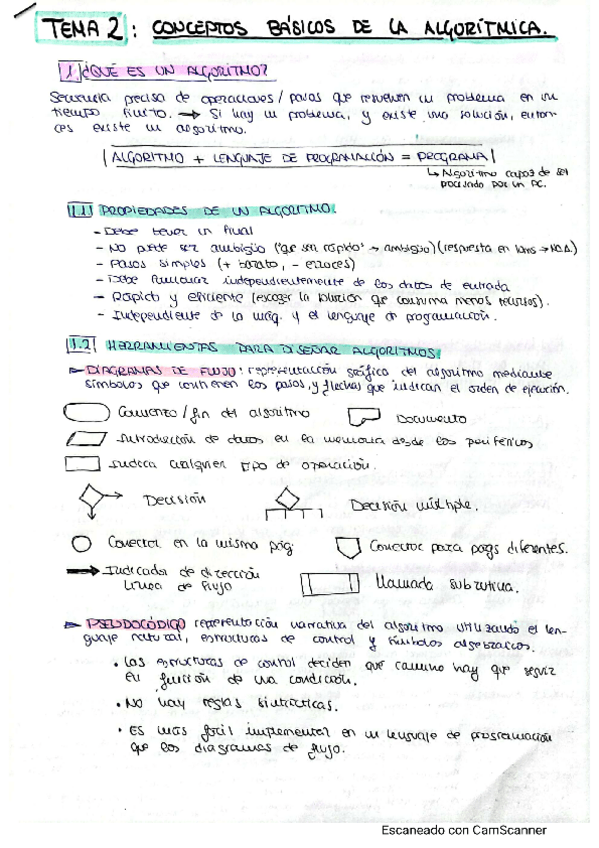 TEMA 2: CONCEPTOS BÁSICOS DE LA ALGORÍTMICA.
1. ¿QUÉ ES UN ALGORITMO?
Secuencia precisa de operaciones/pasos que resuelven un problema en un
tiempo finito. → Si hay un problema, y existe una solución, enton-
ces existe un algoritmo.
ALGORITMO + LENGUAJE DE PROGRAMACIÓN = PROGRAMA
↳ Algoritmo capaz de ser
procesado por un PC.
1.1 PROPIEDADES DE UN ALGORITMO.
- Debe tener un final
- No puede ser ambigüo ("que sea rápido" → ambigüo) (respuesta en → )
- Pasos simples (+ barato, - errores)
- Debe funcionar independientemente de los datos de entrada
- Rápido y eficiente (escoger la solución que consuma menos recursos).
- Independiente de la máq. y el lenguaje de programación.
1.2 HERRAMIENTAS PARA DISEÑAR ALGORITMOS.
DIAGRAMAS DE FLUJO: representación gráfica del algoritmo mediante
símbolos que contienen los pasos, y flechas que indican el orden de ejecución.
Comienzo/fin del algoritmo Documento
Introducción de datos en la memoria desde los periféricos
Indica cualquier tipo de operación.
Decisión Decisión múltiple.
Conector en la misma pág. Conector para págs diferentes.
Indicador de dirección Llamada subrutina.
línea de flujo
PSEUDOCÓDIGO representación narrativa del algoritmo utilizando el len-
guaje natural, estructuras de control y símbolos algebraicos.
• Las estructuras de control deciden que camino hay que seguir
en función de una condición.
• No hay reglas sintácticas.
• Es más fácil implementar en un lenguaje de programación
que los diagramas de flujo.
Escaneado con CamScanner